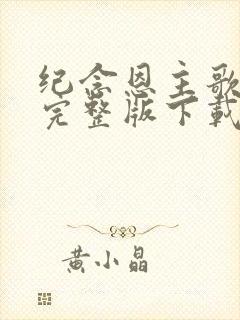 纪念恩主歌
完整版下载
黄小晶